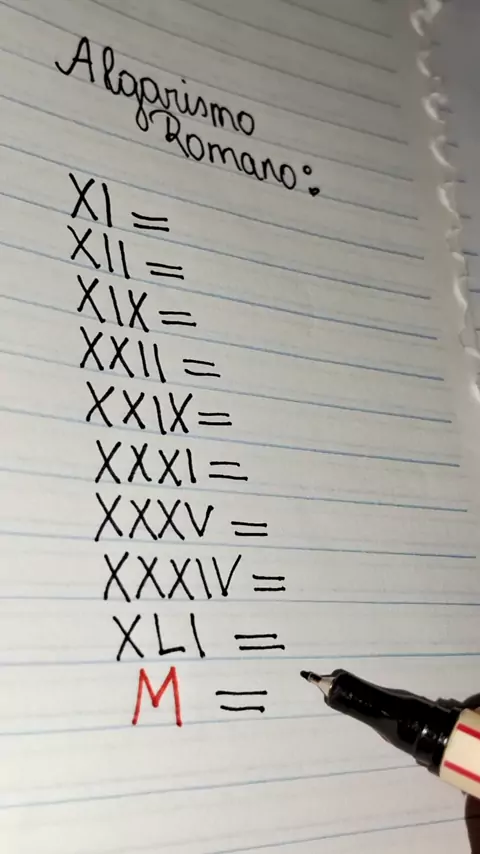 Algarismo
Romano:
XI =
XII =
XIX =
XXII =
XXIX =
XXXI =
XXXV =
XXXIV =
XLI =
M =